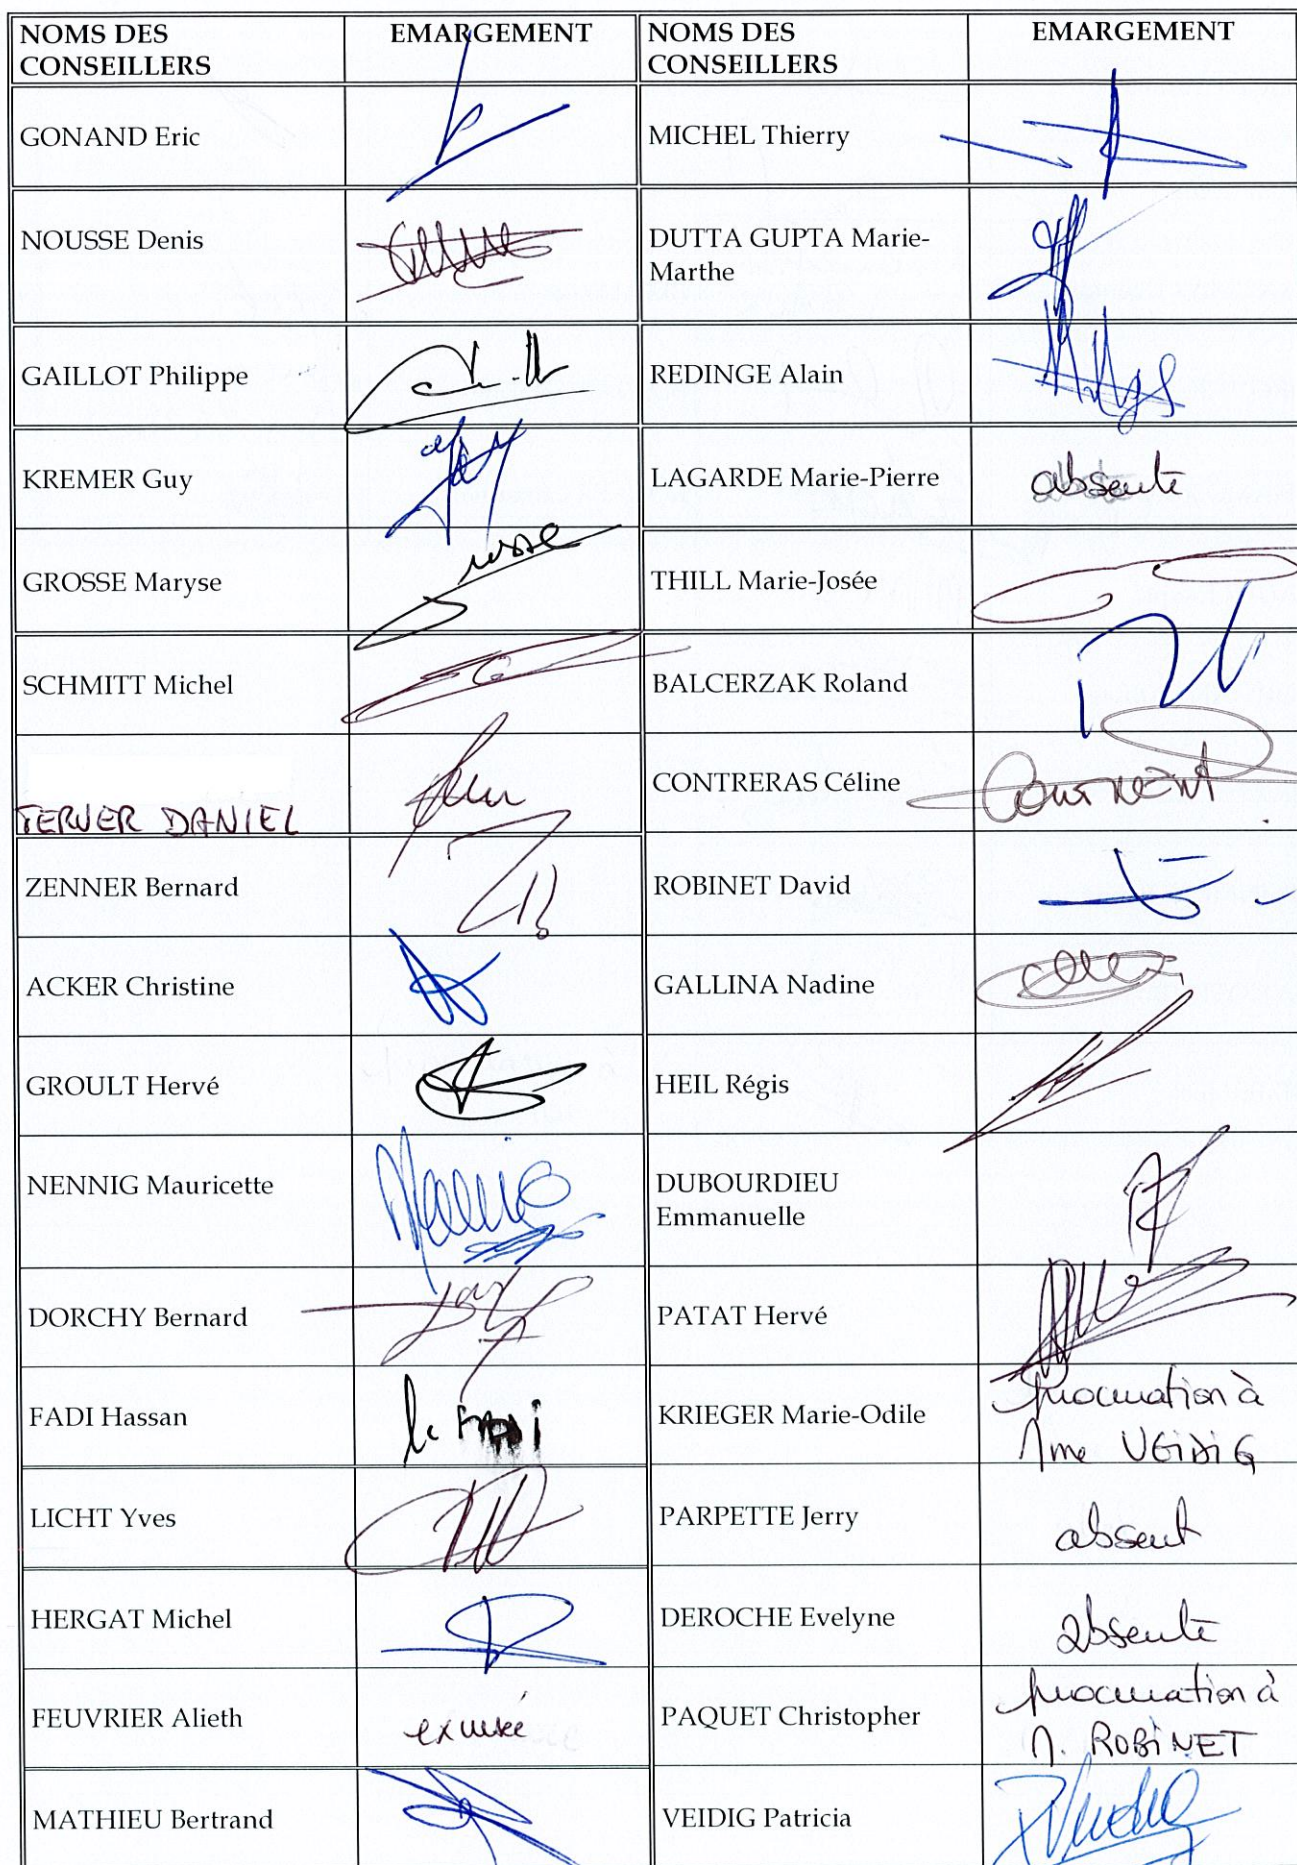 NOMS DES CONSEILLERS EMARGEMENT NOMS DES CONSEILLERS EMARGEMENT
GONAND Eric MICHEL Thierry
NOUSSE Denis DUTTA GUPTA Marie-
Marthe
GAILLOT Philippe REDINGE Alain
KREMER Guy LAGARDE Marie-Pierre absente
GROSSE Maryse THILL Marie-Josée
SCHMITT Michel BALCERZAK Roland
TERVER DANIEL CONTRERAS Céline
ZENNER Bernard ROBINET David
ACKER Christine GALLINA Nadine
GROULT Hervé HEIL Régis
NENNIG Mauricette DUBOURDIEU
Emmanuelle
DORCHY Bernard PATAT Hervé
FADI Hassan KRIEGER Marie-Odile procuration à
Mme VEIDIG
LICHT Yves PARPETTE Jerry absent
HERGAT Michel DEROCHE Evelyne absente
FEUVRIER Alieth excusée PAQUET Christopher procuration à
M. ROBINET
MATHIEU Bertrand VEIDIG Patricia